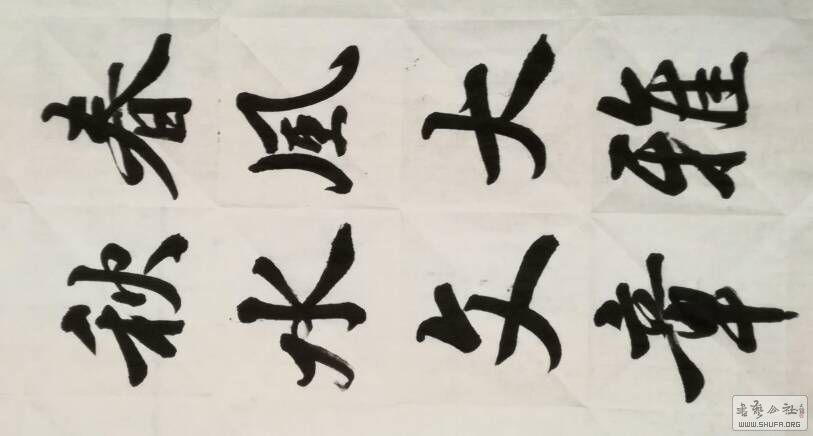 春風大雅
秋水文章
书艺公社
WWW.SHUFA.ORG